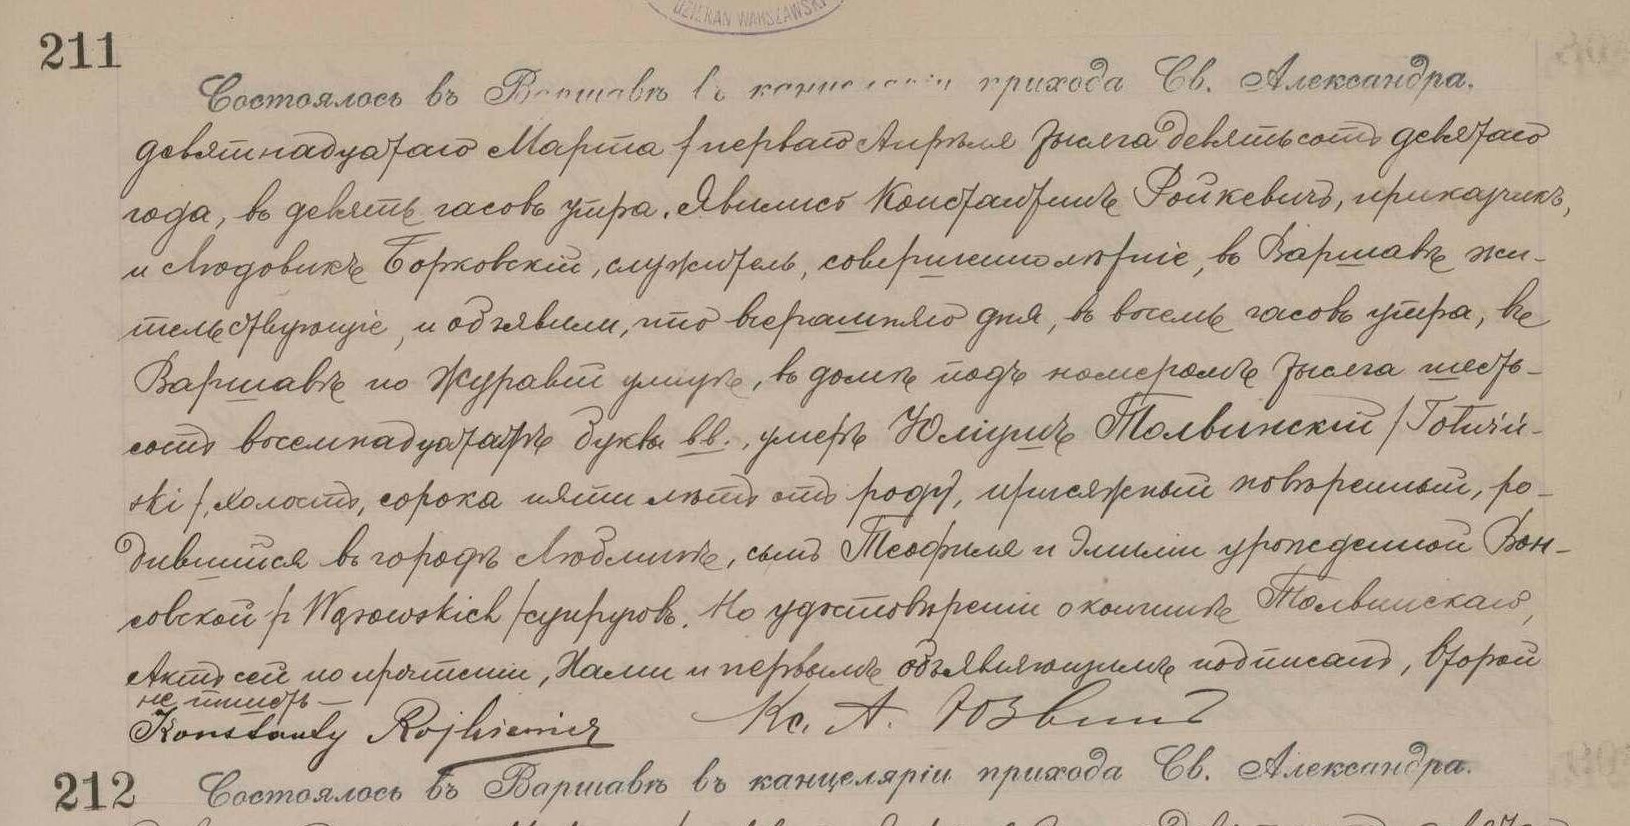 DZIEKAN WARSZAWSKI
211
Состоялось въ Варшавѣ въ канцеляріи прихода Св. Александра.
девятнадцатаго Марта / перваго Апрѣля тысяча девятьсотъ девятаго
года, въ девять часовъ утра. Явились Константинъ Ройкевичъ, приказчикъ,
и Людовикъ Борковскій, служитель, совершеннолѣтніе, въ Варшавѣ жи-
тельствующіе, и объявили, что вчерашняго дня, въ восемь часовъ утра, въ
Варшавѣ по Журавей улицѣ, въ домѣ подъ номеромъ тысяча шесть-
сотъ восемнадцатымъ буквы вв., умеръ Юліушъ Толвинскій / Tołwiń-
ski /, холостъ, сорока пяти лѣтъ отъ роду, присяжный повѣренный, ро-
дившійся въ городѣ Люблинѣ, сынъ Теофиля и Эмиліи урожденной Вон-
совской / z Wąsowskich / супруговъ. По удостовѣреніи о кончинѣ Толвинскаго,
Актъ сей по прочтеніи, Нами и первымъ объявляющимъ подписанъ, второй
не пишетъ –
Konstanty Rojkiewicz Кс. А. Юзвикъ
212
Состоялось въ Варшавѣ въ канцеляріи прихода Св. Александра.